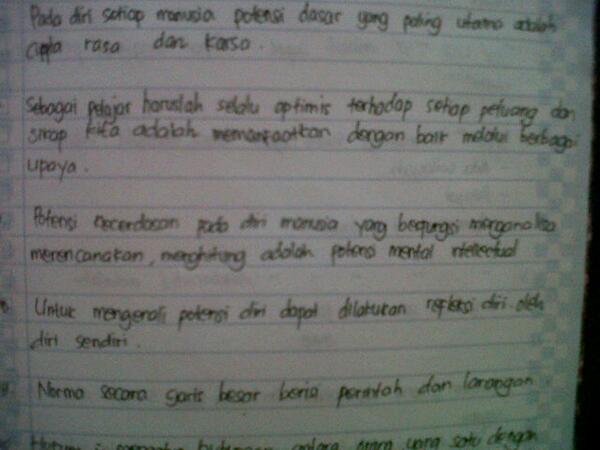 Pada diri setiap manusia potensi dasar yang paling utama adalah
cipta rasa dan karsa.
Sebagai pelajar haruslah selalu optimis terhadap setiap peluang dan
sikap kita adalah memanfaatkan dengan baik melalui berbagai
upaya.
Potensi kecerdasan pada diri manusia yang berfungsi menganalisa
merencanakan, menghitung adalah potensi mental intelectual
Untuk mengenali potensi diri dapat dilakukan refleksi diri oleh
diri sendiri.
Norma secara garis besar berisi perintah dan larangan.
antara orang yang satu dengan